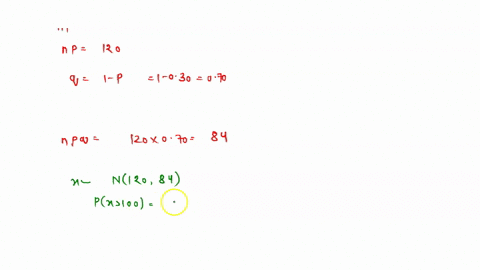 np = 120
q = 1-P = 1-0.30 = 0.70
npq = 120 x 0.70 = 84
x~ N(120, 84)
P(x>100) =